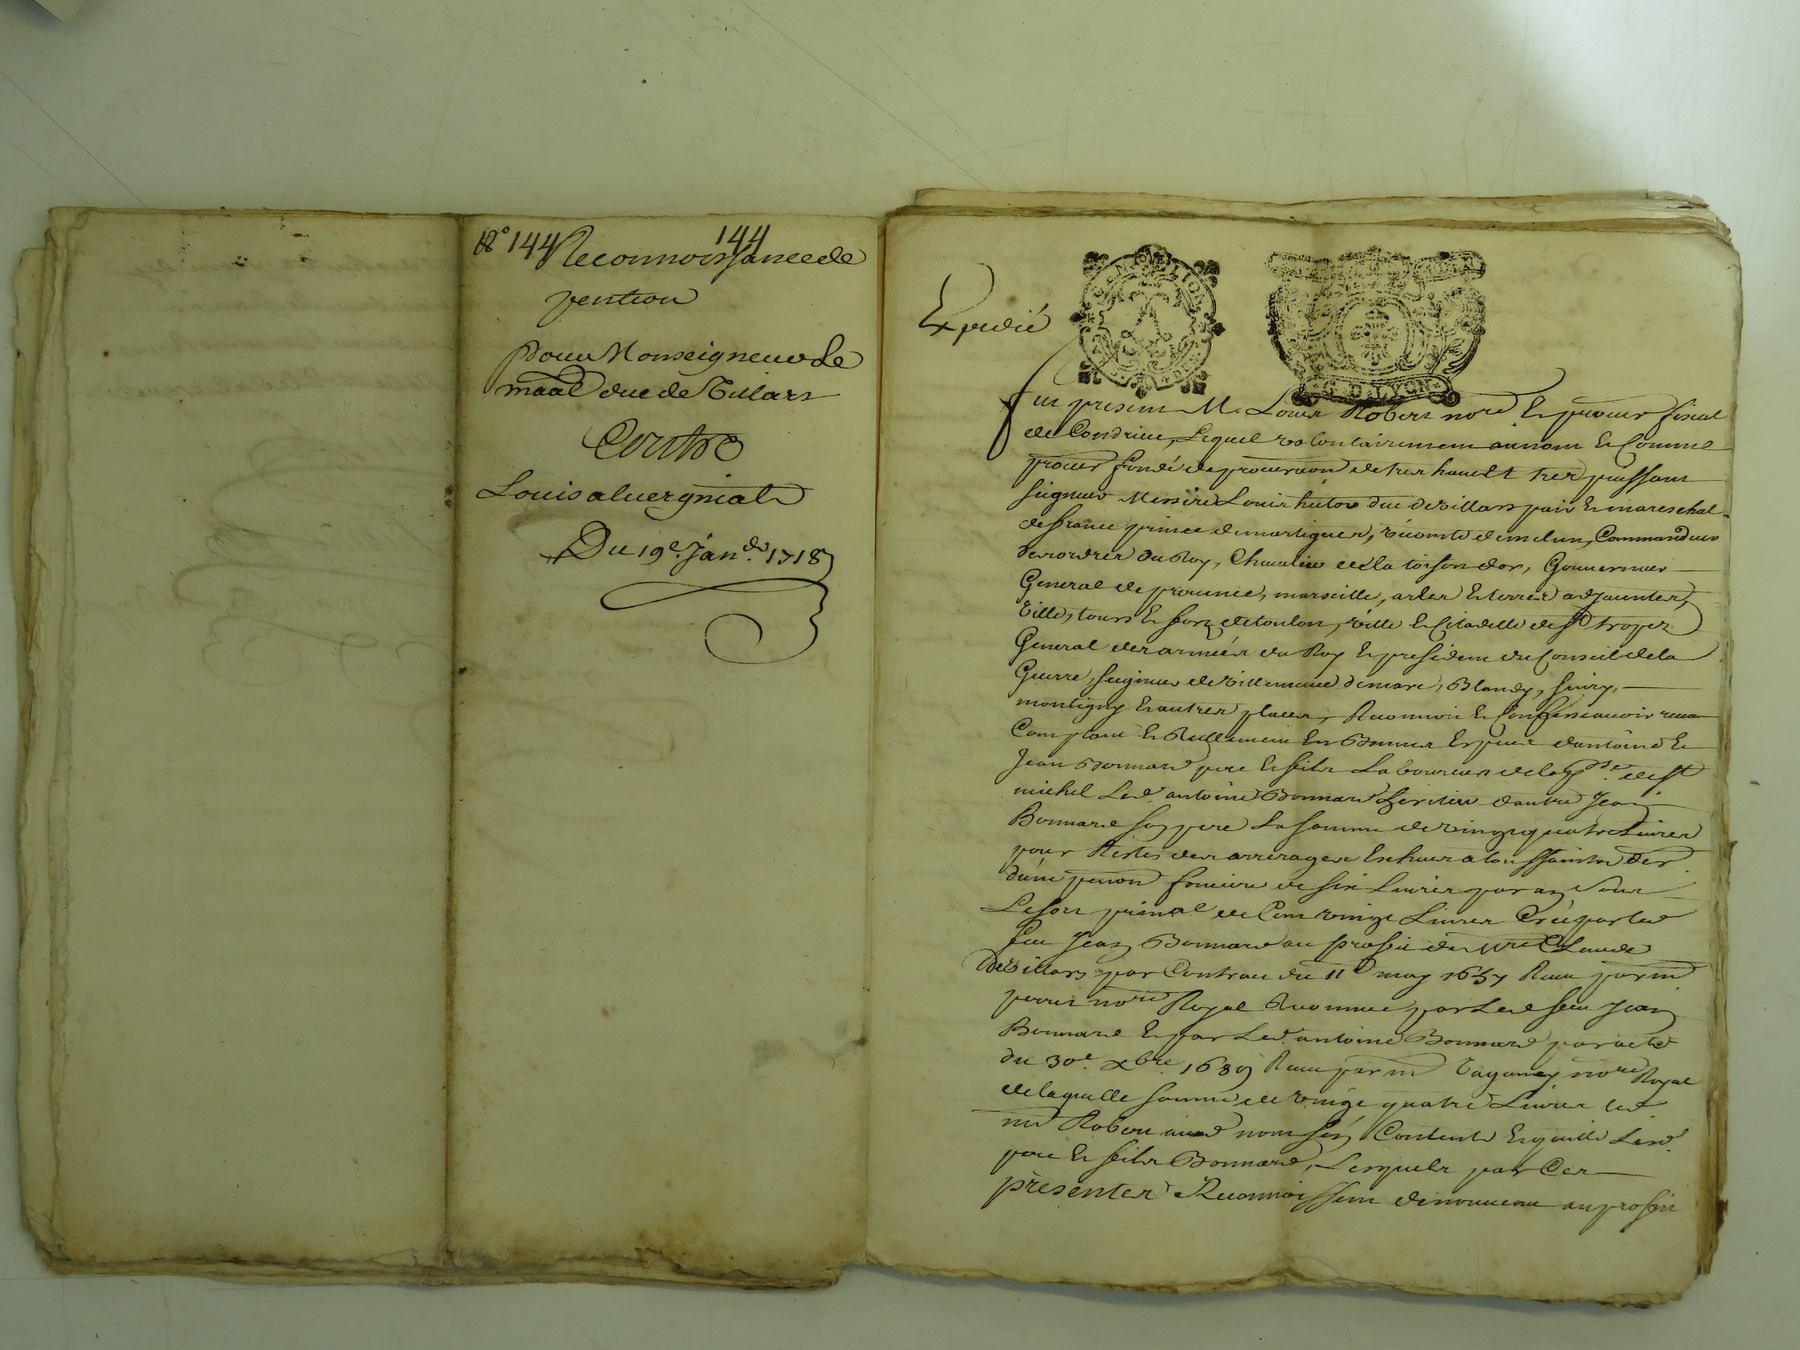 N° 144 144
Reconnoissance de
pention
pour Monseigneur Le
maal duc de Villars
Contre
Louis aluergniat
Du 19e. Janer. 1718
Expedié
GEN. DE LYON
G. D. LYON
fut present Me. Louis Robert nore. & procur fiscal
de Condrieu, Lequel volontairement au nom & Comme
procur fondé de procuraon de tres haut & tres puissant
seigneur Messire Louis hector duc de Villars pair & mareschal
de france prince de martigues, vicomte de melun, Commandeur
des ordres du Roy, Cheualier de la toison dor, Gouuerneur
General de prouence, marseille, arles & terres adjacentes,
Ville, tours & fort de toulon, ville & Citadelle de st. tropez
General des armées du Roy & president du Conseil de la
Guerre, seigneur de Villeneuue Blandy,
montigny & autres places, Reconnoit & Confesse auoir receu
Comptant & Reellement En Bonnes Especes dantoine &
Jean Bonnard pere & fils Laboureurs de la psse. de st.
michel Led. antoine Bonnard heritier dautre Jean
Bonnard son pere La somme de vingt quatre Liures
pour Restes des arrerages Escheus a la toussaints der
dune pention fonciere de six Liures par an sous
Le sort principal de Cent vingt Liures Créé par led
feu Jean Bonnard au profit de mre Claude
De Villars par Contrat du 11e may 1657 Receu par me
perrin nore Royal Reconnue par Led feu Jean
Bonnard & par Led. antoine Bonnard par acte
du 30e. xbre 1689 Receu par me nore Royal
de laquelle somme de vingt quatre Liures led
me Robert aud nom sen Contente & quitte Lesd.
pere & fils Bonnard, Lesquels par Ces
presentes Reconnoissent de nouueau au profit